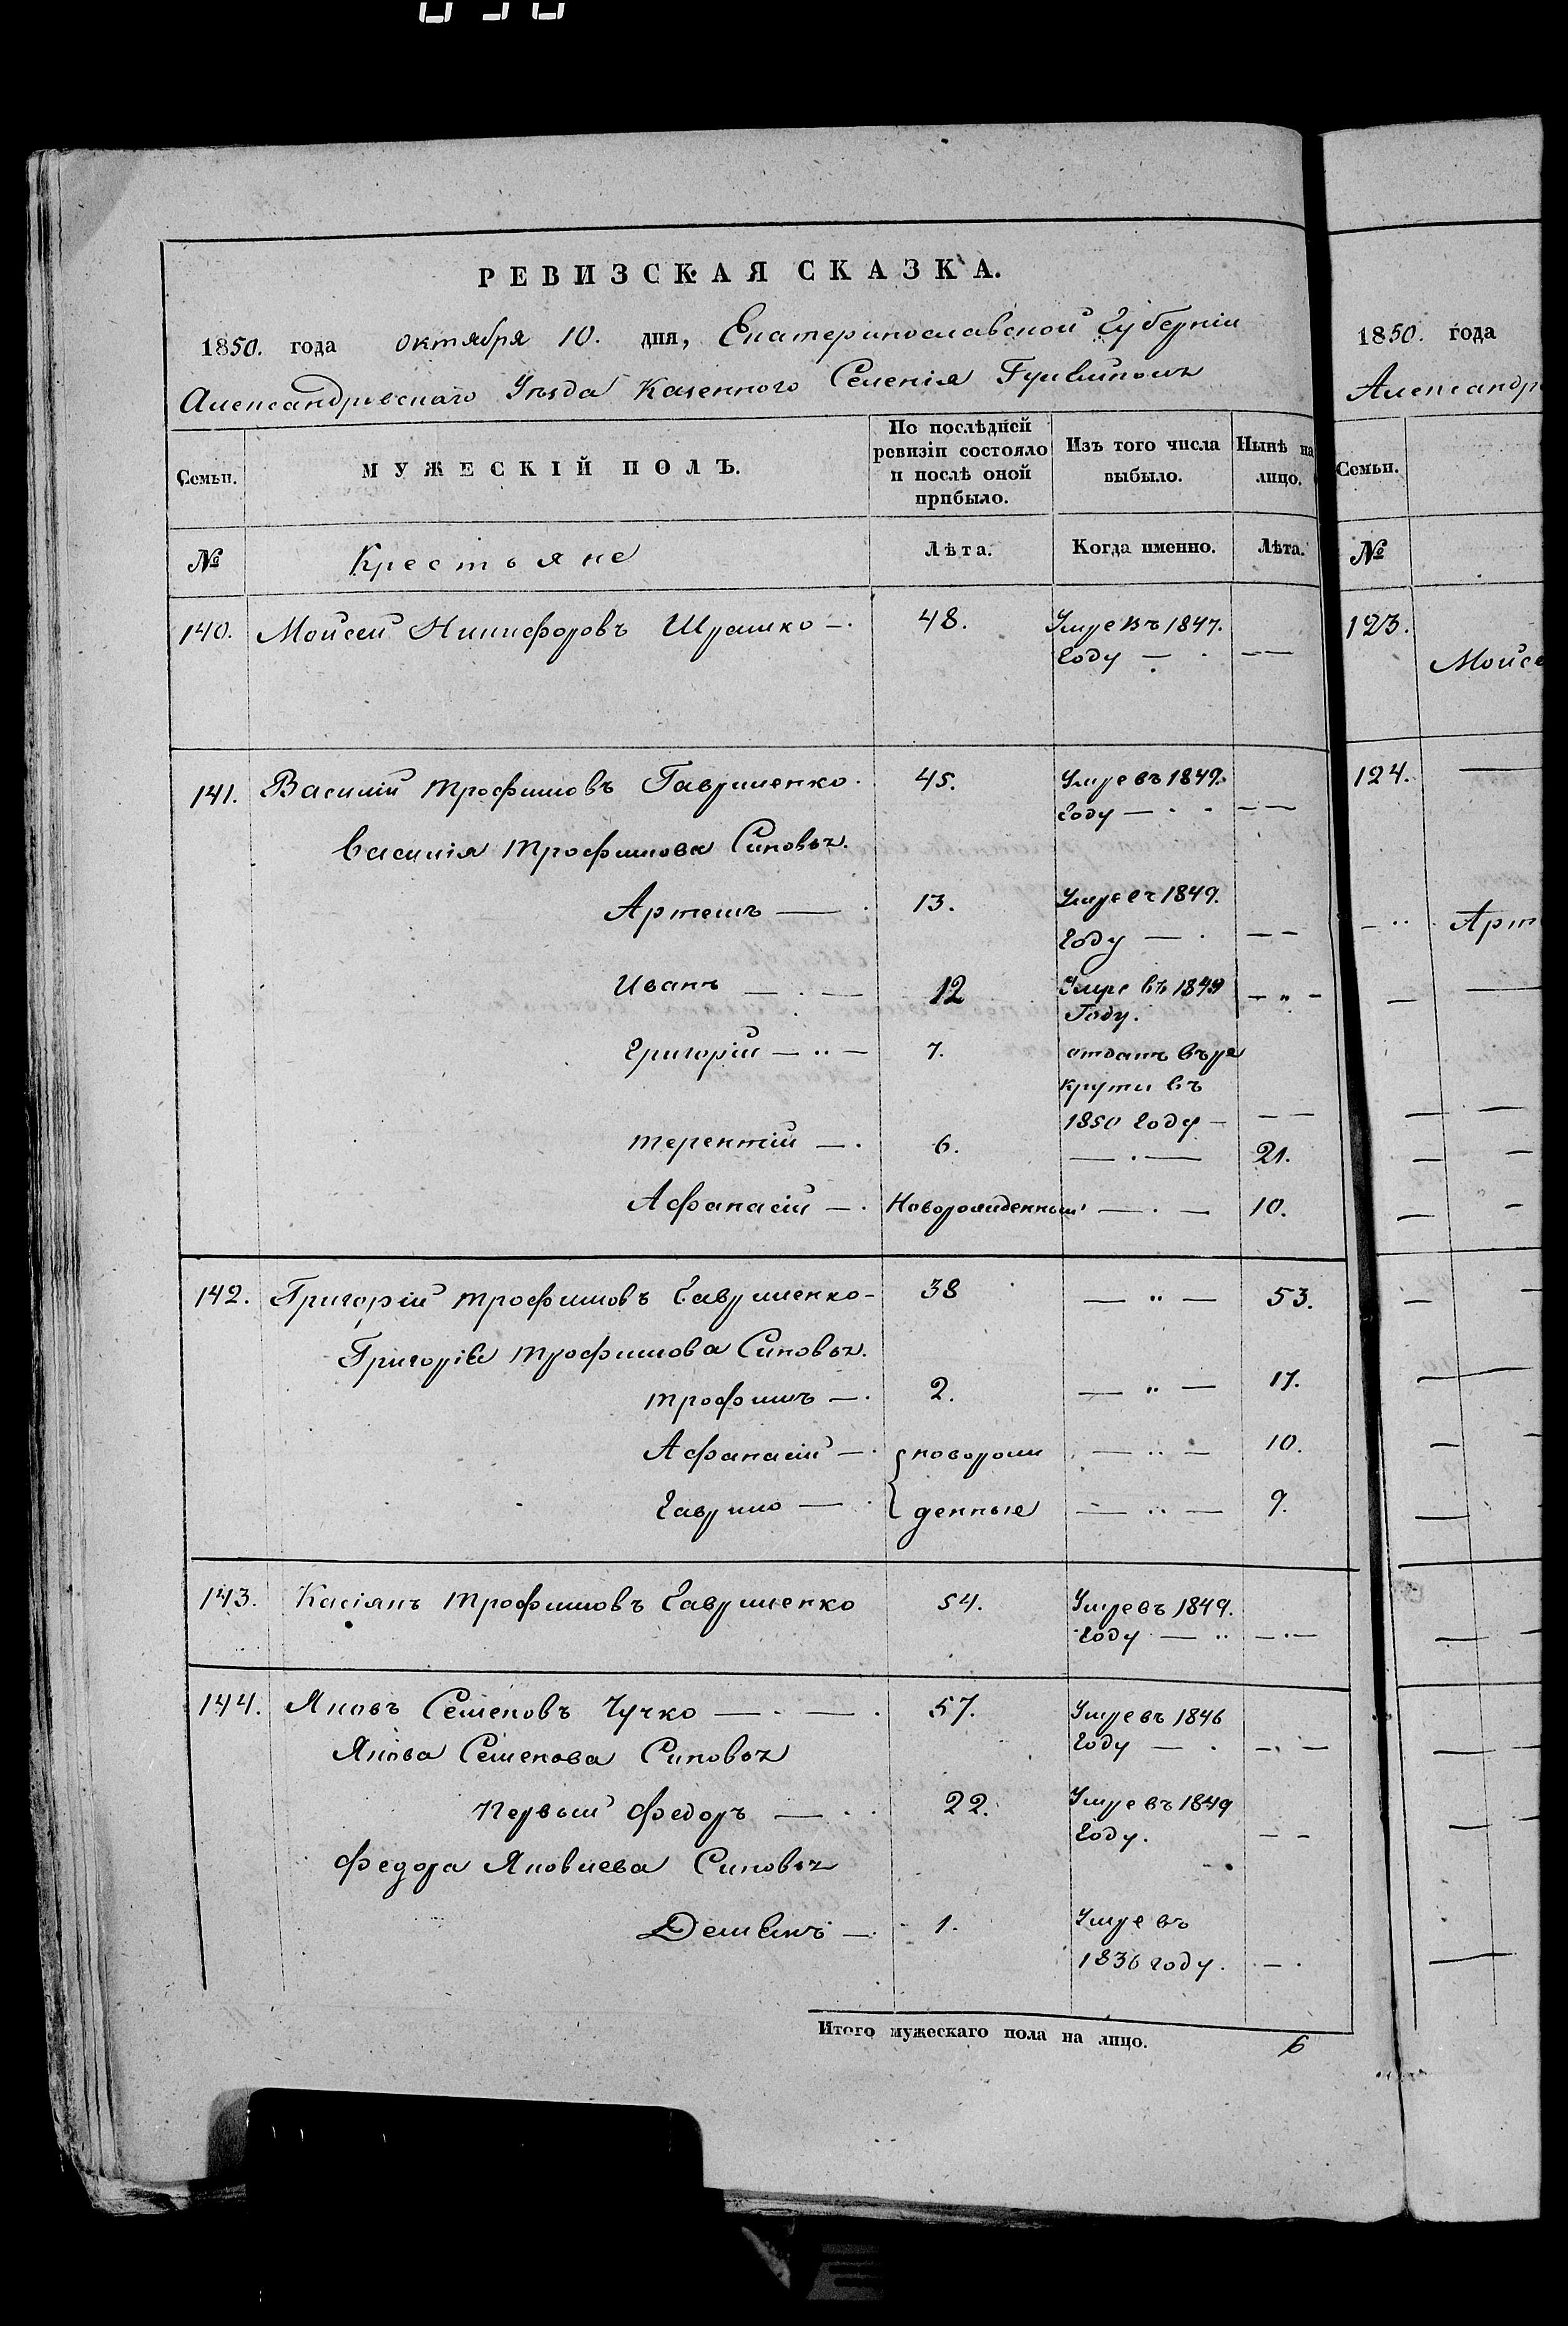 РЕВИЗСКАЯ СКАЗКА.
1850. года октября 10. дня, Екатеринославской Губерніи
Александровскаго Уѣзда Казенного Селенія
Семьи. МУЖЕСКІЙ ПОЛЪ. По послѣдней ревизіи состояло и послѣ оной прибыло. Изъ того числа выбыло. Нынѣ на лицо.
№ Крестьяне Лѣта. Когда именно. Лѣта.
140. Моисей Никифоровъ 48. Умре въ 1847.
Году — . — —
141. Василий Трофимовъ Гавриленко. 45. Умре въ 1849.
Году — . - — —
Василія Трофимова Синовья.
Артемъ — . 13. Умре въ 1849.
Году — . — —
Иванъ — . — 12 Умре въ 1849 — „ -
Году.
Григорій — .. — 7. отданъ въ ре
крути въ
1850 Году — — —
Терентій — . 6. — . — 21.
Афанасій — . Новорожденный — . — 10.
142. Григорій Трофимовъ Гавриленко - 38 — „ — 53.
Григорія Трофимова Синовья.
Трофимъ — . 2. — „ — 17.
Афанасій — . новорож — .. — 10.
Гаврило — . денные — .. — 9.
143. Касіянъ Трофимовъ Гавриленко 54. Умре въ 1849.
Году — .. — . —
144. Яковъ Семеновъ Чучко — . — . 57. Умре въ 1846
Году — . — . —
Якова Семенова Синовья
Первый Федоръ — . . 22. Умре въ 1849
Году. — —
Федора Яковлева Синовья
Демянъ — . 1. Умре въ
1836 году. . — .
Итого мужескаго пола на лицо. 6
1850. года
Александр
Семьи.
№
123.
Моисе
124. —
— .. . Арт